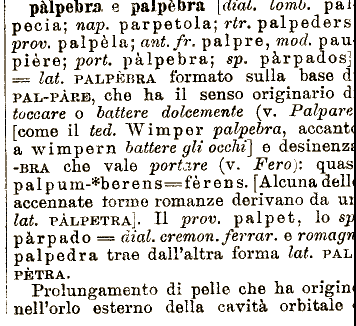 pàlpebra e palpèbra [dial. lomb. pal
pecia; nap. parpetola; rtr. palpeders
prov. palpèla; ant. fr. palpre, mod. pau
pière; port. pàlpebra; sp. pàrpados]
= lat. PALPÈBRA formato sulla base d
PAL-PÀRE, che ha il senso originario d
toccare o battere dolcemente (v. Palpare
[come il ted. Wimper palpebra, accanto
a wimpern battere gli occhi] e desinenza
-BRA che vale portare (v. Fero): quas
palpum-*berens=fèrens. [Alcuna dell
accennate forme romanze derivano da un
lat. PÀLPETRA]. Il prov. palpet, lo sp
pàrpado = dial. cremon. ferrar. e romagn
palpedra trae dall'altra forma lat. PAL
PÈTRA.
Prolungamento di pelle che ha origin
nell'orlo esterno della cavità orbitale